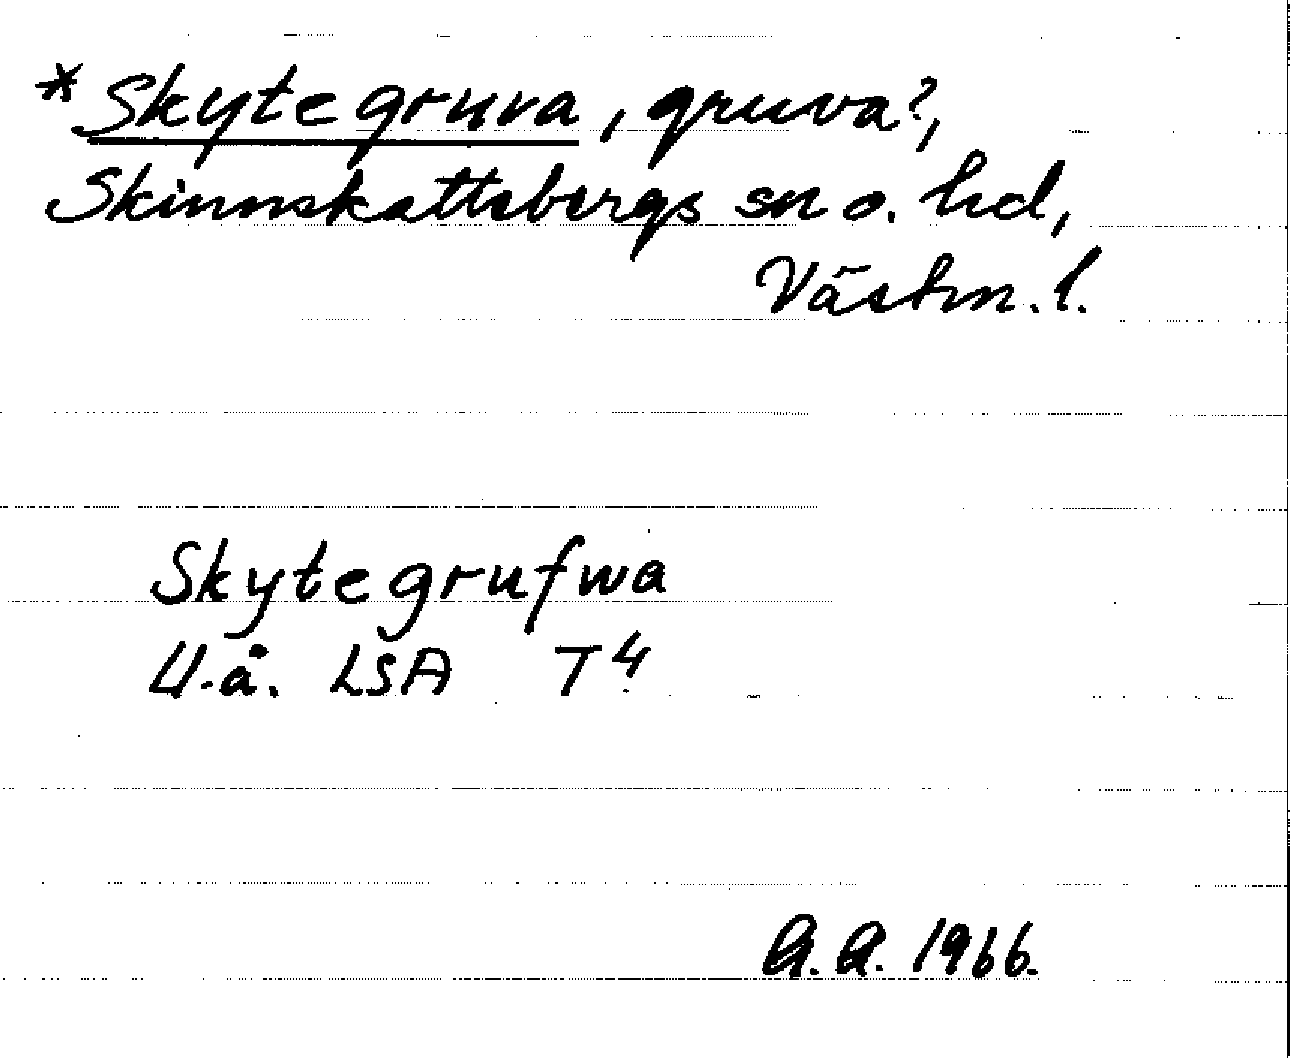 *Skytegruva, gruva?,
Skinnskattebergs sn o. hd,
Västm. l.
Skytegrufwa
U.å. LSA T 4
A.A. 1966.